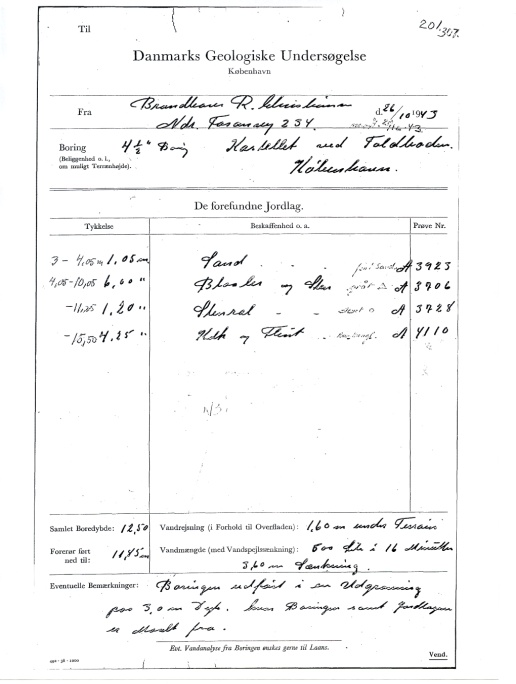 Til
201/307.
Danmarks Geologiske Undersøgelse
København
Fra Brandhaver R. Christiansen d. 26/10 1943
Ndr. Fasanvej 234.
Boring 4½" Boring Kastellet ved Toldboden.
(Beliggenhed o. l., om muligt Terrænhøjde).
København.
De forefundne Jordlag.
Tykkelse Beskaffenhed o. a. Prøve Nr.
3 - 4,05 m 1,05 m Sand - - A 3923
4,05-10,05 6,00 " Blaaler og Sten A 3706
-11,25 1,20 " Stenral - - A 3728
-15,50 4,25 " Kalk og Flint A 4110
Samlet Boredybde: 12,50 Vandrejsning (i Forhold til Overfladen): 1,60 m under Terrain
Forerør ført ned til: 11,45 m Vandmængde (med Vandspejlssænkning): 500 Liter i 16 Minutter
3,60 m Sænkning.
Eventuelle Bemærkninger: Boringen udført i en Udgravning
paa 3,0 m Dyb. hvor Boringen samt Jordlagene
er Maalt fra.
Evt. Vandanalyse fra Boringen ønskes gerne til Laans.
Vend.